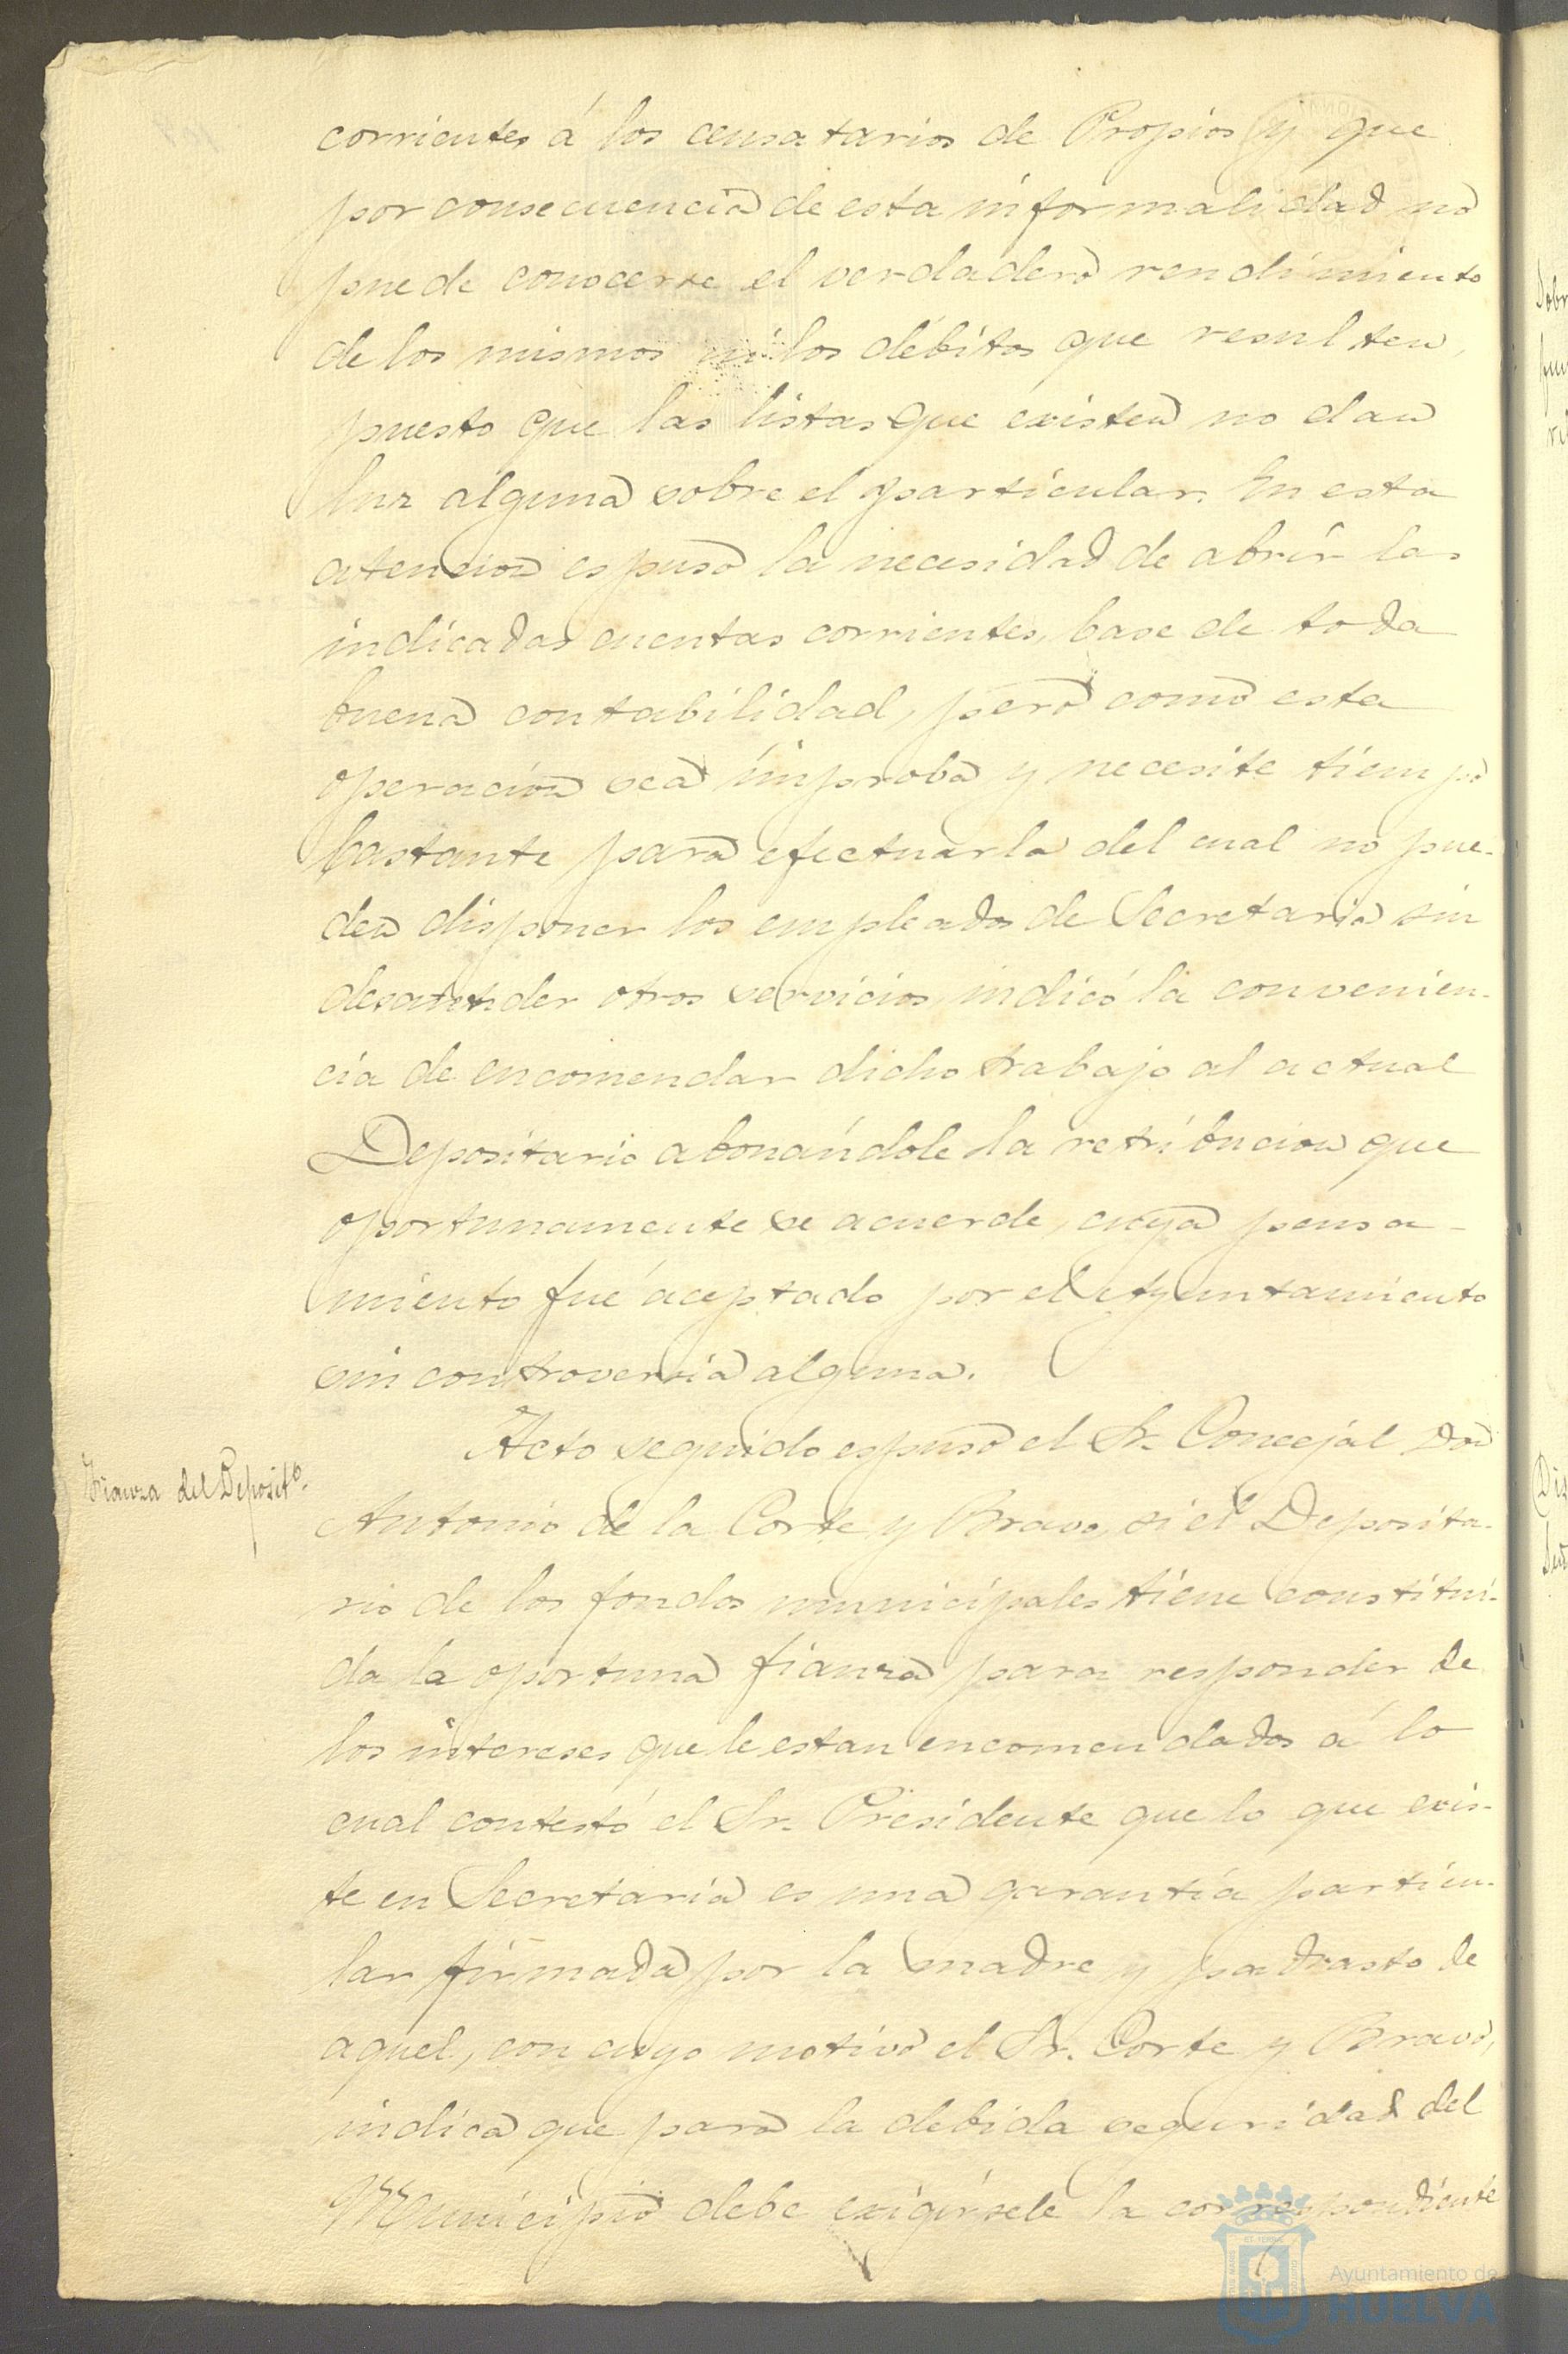 corrientes á los censatarios de Propios y que
por consecuencia de esta informalidad no
puede conocerse el verdadero rendimiento
de los mismos ni los débitos que resulten,
puesto que las listas que existen no dan
luz alguna sobre el particular. En esta
atencion espuso la necesidad de abrir las
indicadas cuentas corrientes, base de toda
buena contabilidad, pero como esta
operacion sea improba y necesite tiempo
bastante para efectuarla del cual no pue-
den disponer los empleados de Secretaria sin
desatender otros servicios, indicó la convenien-
cia de encomendar dicho trabajo al actual
Depositario abonándole la retribucion que
oportunamente se acuerde, cuya pensa-
miento fué aceptado por el Ayuntamiento
sin controversia alguna.
Fianza del Deposit.º
Acto seguido espuso el Sr. Concejal Don
Antonio de la Corte y Bravo, si el Deposita-
rio de los fondos municipales tiene constitui-
da la oportuna fianza para responder de
los intereses que le estan encomendados á lo
cual contestó el Sr. Presidente que lo que exis-
te en Secretaria es una garantía particu-
lar firmada por la madre y padrasto de
aquel, con cuyo motivo el Sr. Corte y Bravo,
indica que para la debida seguridad del
Municipio debe exigírsele la correspondiente
Ayuntamiento de
HUELVA